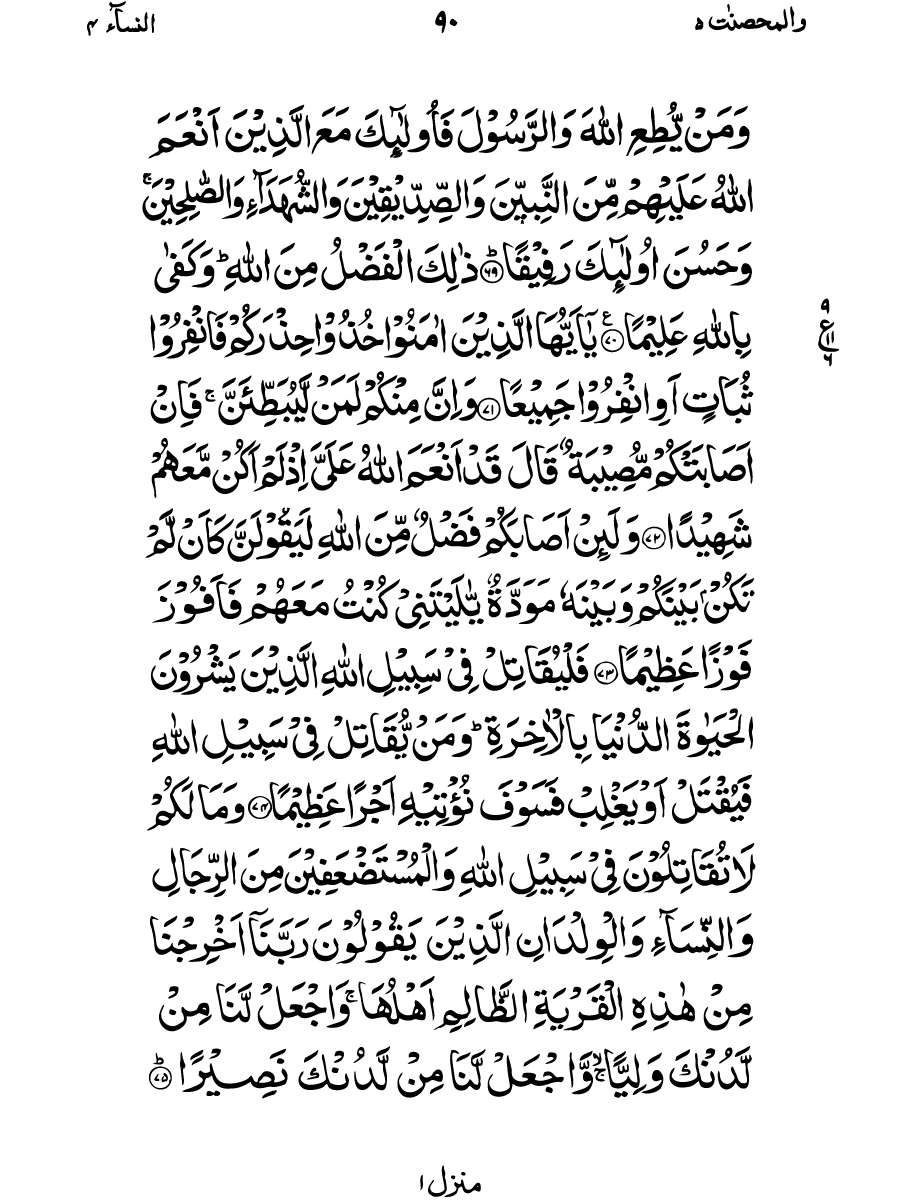 والمحصنٰت ٥
٩٠
النسآء ٤
وَمَنۡ يُّطِعِ اللّٰهَ وَالرَّسُوۡلَ فَاُولٰٓئِكَ مَعَ الَّذِيۡنَ اَنۡعَمَ
اللّٰهُ عَلَيۡهِمۡ مِّنَ النَّبِيّٖنَ وَالصِّدِّيۡقِيۡنَ وَالشُّهَدَآءِ وَالصّٰلِحِيۡنَ ۚ
وَحَسُنَ اُولٰٓئِكَ رَفِيۡقًا ؕ‏﴿۶۹﴾ ذٰلِكَ الۡفَضۡلُ مِنَ اللّٰهِ ؕ وَكَفٰى
بِاللّٰهِ عَلِيۡمًا ﴿۷۰﴾ ع يٰۤاَيُّهَا الَّذِيۡنَ اٰمَنُوۡا خُذُوۡا حِذۡرَكُمۡ فَانْفِرُوۡا
٩
ع
١١
٦
ثُبَاتٍ اَوِ انْفِرُوۡا جَمِيۡعًا ﴿۷۱﴾ وَاِنَّ مِنۡكُمۡ لَمَنۡ لَّيُبَطِّئَنَّ ۚ فَاِنۡ
اَصَابَتۡكُمۡ مُّصِيۡبَةٌ قَالَ قَدۡ اَنۡعَمَ اللّٰهُ عَلَىَّ اِذۡ لَمۡ اَكُنۡ مَّعَهُمۡ
شَهِيۡدًا ﴿۷۲﴾ وَلَئِنۡ اَصَابَكُمۡ فَضۡلٌ مِّنَ اللّٰهِ لَيَقُوۡلَنَّ كَاَنۡ لَّمۡ
تَكُنۡۢ بَيۡنَكُمۡ وَبَيۡنَهٗ مَوَدَّةٌ يّٰلَيۡتَنِىۡ كُنۡتُ مَعَهُمۡ فَاَفُوۡزَ
فَوۡزًا عَظِيۡمًا ﴿۷۳﴾ فَلۡيُقَاتِلۡ فِىۡ سَبِيۡلِ اللّٰهِ الَّذِيۡنَ يَشۡرُوۡنَ
الۡحَيٰوةَ الدُّنۡيَا بِالۡاٰخِرَةِ ؕ وَمَنۡ يُّقَاتِلۡ فِىۡ سَبِيۡلِ اللّٰهِ
فَيُقۡتَلۡ اَوۡ يَغۡلِبۡ فَسَوۡفَ نُؤۡتِيۡهِ اَجۡرًا عَظِيۡمًا ﴿۷۴﴾ وَمَا لَكُمۡ
لَا تُقَاتِلُوۡنَ فِىۡ سَبِيۡلِ اللّٰهِ وَالۡمُسۡتَضۡعَفِيۡنَ مِنَ الرِّجَالِ
وَالنِّسَآءِ وَالۡوِلۡدَانِ الَّذِيۡنَ يَقُوۡلُوۡنَ رَبَّنَاۤ اَخۡرِجۡنَا
مِنۡ هٰذِهِ الۡقَرۡيَةِ الظَّالِمِ اَهۡلُهَا ۚ وَاجۡعَلْ لَّنَا مِنۡ
لَّدُنۡكَ وَلِيًّا ۙۚ وَّاجۡعَلْ لَّنَا مِنۡ لَّدُنۡكَ نَصِيۡرًا ؕ‏﴿۷۵﴾
منزل ١